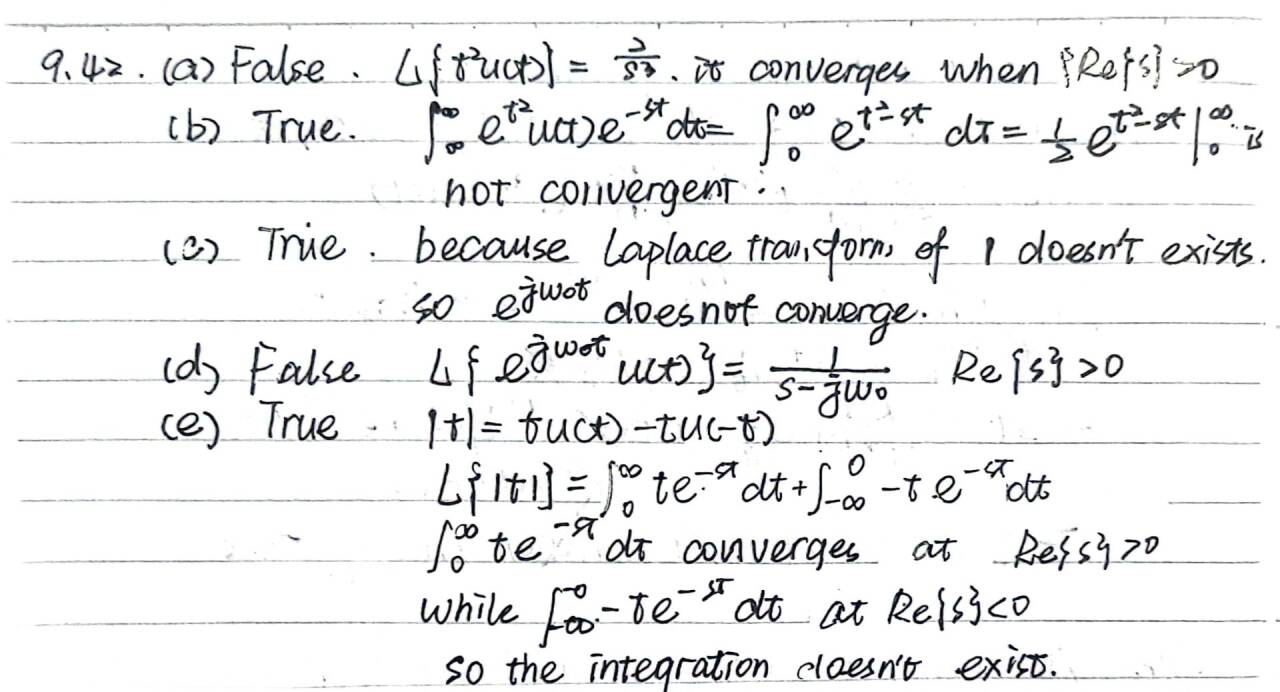 9.42. (a) False. L{t²u(t)} = 2/s³. it converges when {Re{s}>0
(b) True. ∫_∞^∞ e^{t²}u(t)e^{-st}dt = ∫_0^∞ e^{t²-st} dt = 1/2 e^{t²-st}|_0^∞ is
not convergent.
(c) True. because Laplace transform of 1 doesn't exists.
so e^{jω₀t} does not converge.
(d) False L{e^{jω₀t} u(t)} = 1/(s-jω₀) Re{s}>0
(e) True |t| = tu(t) -tu(-t)
L{|t|} = ∫_0^∞ te^{-st} dt + ∫_{-∞}^0 -te^{-st}dt
∫_0^∞ te^{-st} dt converges at Re{s}>0
while ∫_{-∞}^0 -te^{-st} dt at Re{s}<0
so the integration doesn't exist.